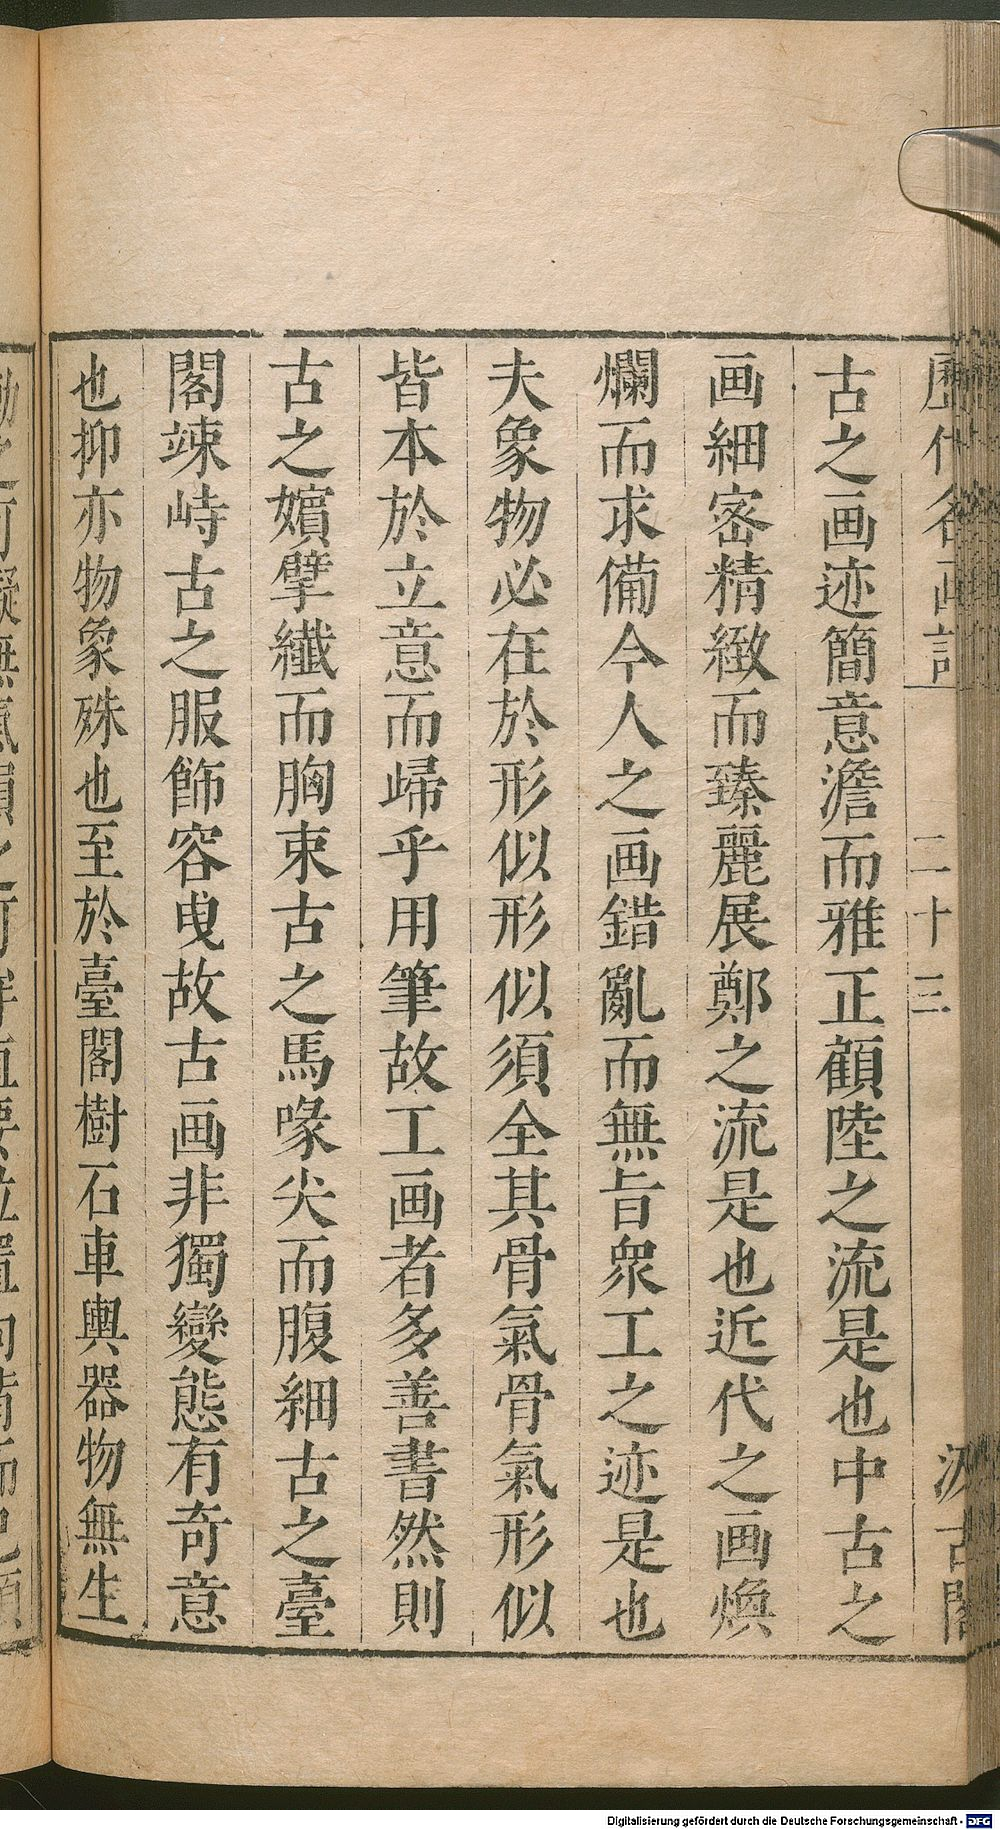 歷代名画記 二十三 汲古閣
古之画迹簡意澹而雅正顧陸之流是也中古之
画細密精緻而臻麗展鄭之流是也近代之画煥
爛而求備今人之画錯亂而無旨衆工之迹是也
夫象物必在於形似形似須全其骨氣骨氣形似
皆本於立意而歸乎用筆故工画者多善書然則
古之嬪擘纖而胸束古之馬喙尖而腹細古之臺
閣竦峙古之服飾容曳故古画非獨變態有奇意
也抑亦物象殊也至於臺閣樹石車輿器物無生
Digitalisierung gefördert durch die Deutsche Forschungsgemeinschaft - DFG